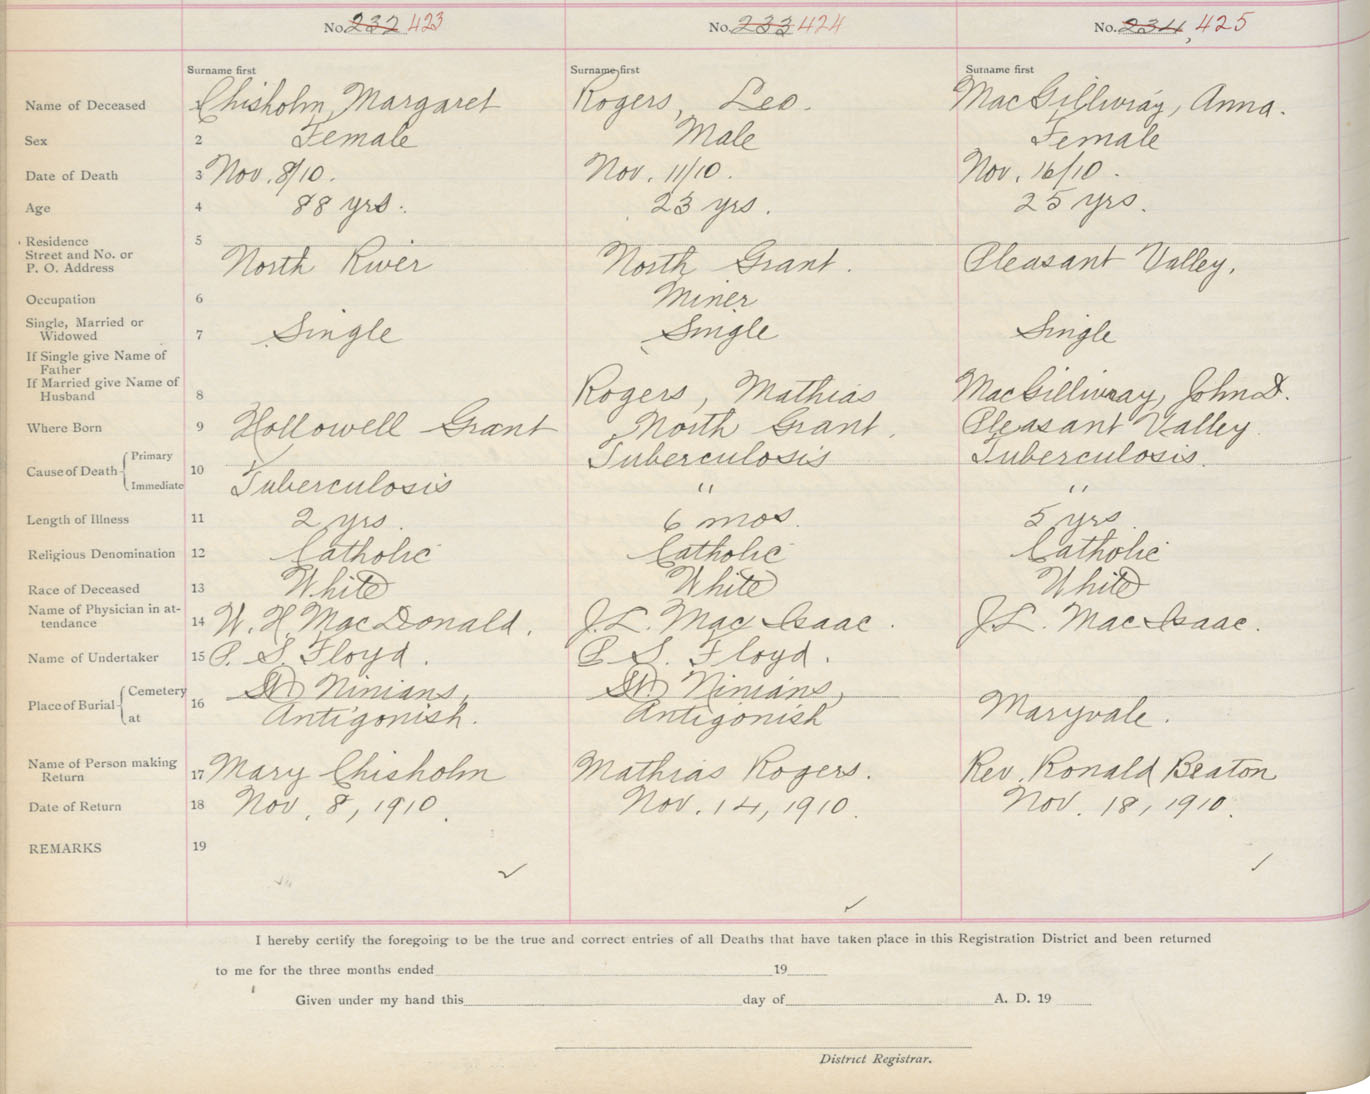 No. 232 423 No. 233 424 No. 234, 425
Surname first Surname first Surname first
Name of Deceased 1 Chisholm, Margaret Rogers, Leo. MacGillivray, Anna.
Sex 2 Female Male Female
Date of Death 3 Nov. 8/10. Nov. 11/10. Nov. 16/10.
Age 4 88 yrs. 23 yrs. 25 yrs.
Residence 5
Street and No. or
P. O. Address North River North Grant. Pleasant Valley.
Occupation 6 Miner
Single, Married or
Widowed 7 Single Single Single
If Single give Name of
Father
If Married give Name of
Husband 8 Rogers, Mathias MacGillivray, John D.
Where Born 9 Hollowell Grant North Grant. Pleasant Valley
Cause of Death Primary 10 Tuberculosis Tuberculosis.
Immediate Tuberculosis " "
Length of Illness 11 2 yrs. 6 mos. 5 yrs
Religious Denomination 12 Catholic Catholic Catholic
Race of Deceased 13 White White White
Name of Physician in at-
tendance 14 W. H. MacDonald. J.L. MacIsaac. J.L. MacIsaac.
Name of Undertaker 15 P. S. Floyd. P. S. Floyd.
Place of Burial Cemetery 16 St. Ninians, St. Ninians,
at Antigonish. Antigonish Maryvale.
Name of Person making
Return 17 Mary Chisholm Mathias Rogers. Rev. Ronald Beaton
Date of Return 18 Nov. 8, 1910. Nov. 14, 1910. Nov. 18, 1910.
REMARKS 19
I hereby certify the foregoing to be the true and correct entries of all Deaths that have taken place in this Registration District and been returned
to me for the three months ended 19
Given under my hand this day of A. D. 19
District Registrar.